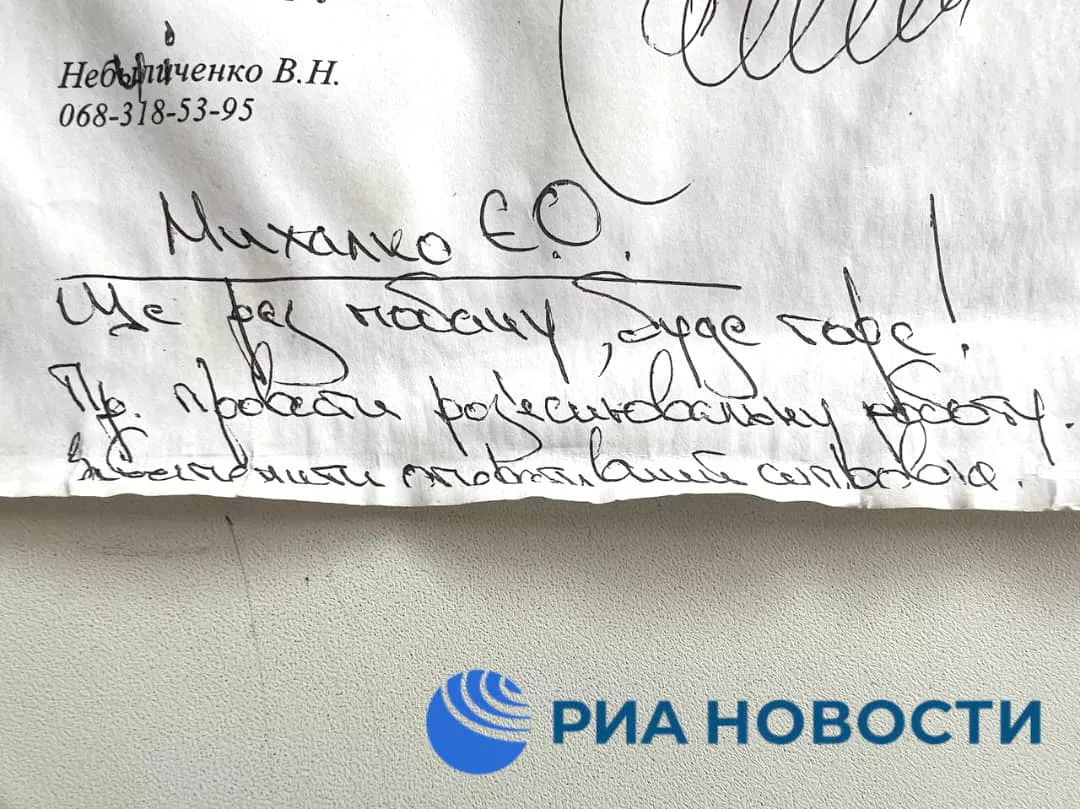 Небыличенко В.Н.
068-318-53-95
Михалко Є.О.
Ще раз побачу, буде горе!
Пр. провести роз'яснювальну роботу.
РИА НОВОСТИ